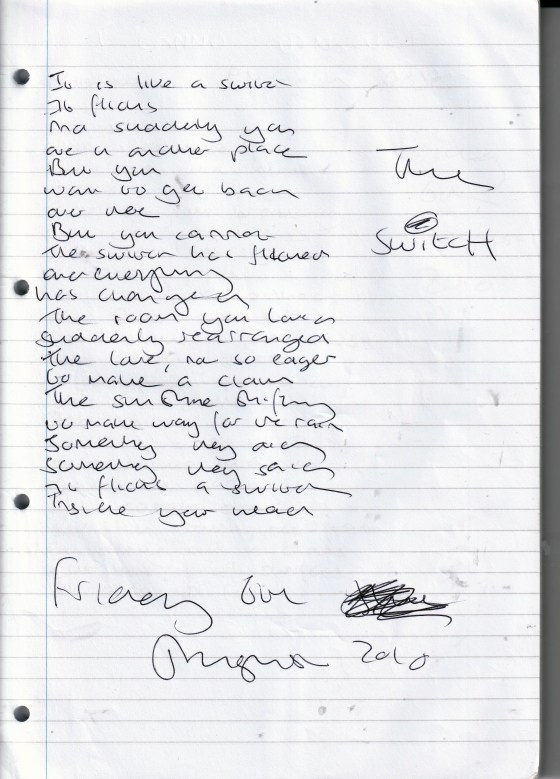 The
Switch
It is like a switch
It flicks
And suddenly you
are in another place
But you
want to get back
But you cannot
The switch has flicked
and everything
has changed
The room you love
suddenly rearranged
The love, not so eager
to make a claim
The sunshine shifting
to make way for the rain
Something they did
Something they said
It flicks a switch
Inside your head
Friday 6th
August 2010